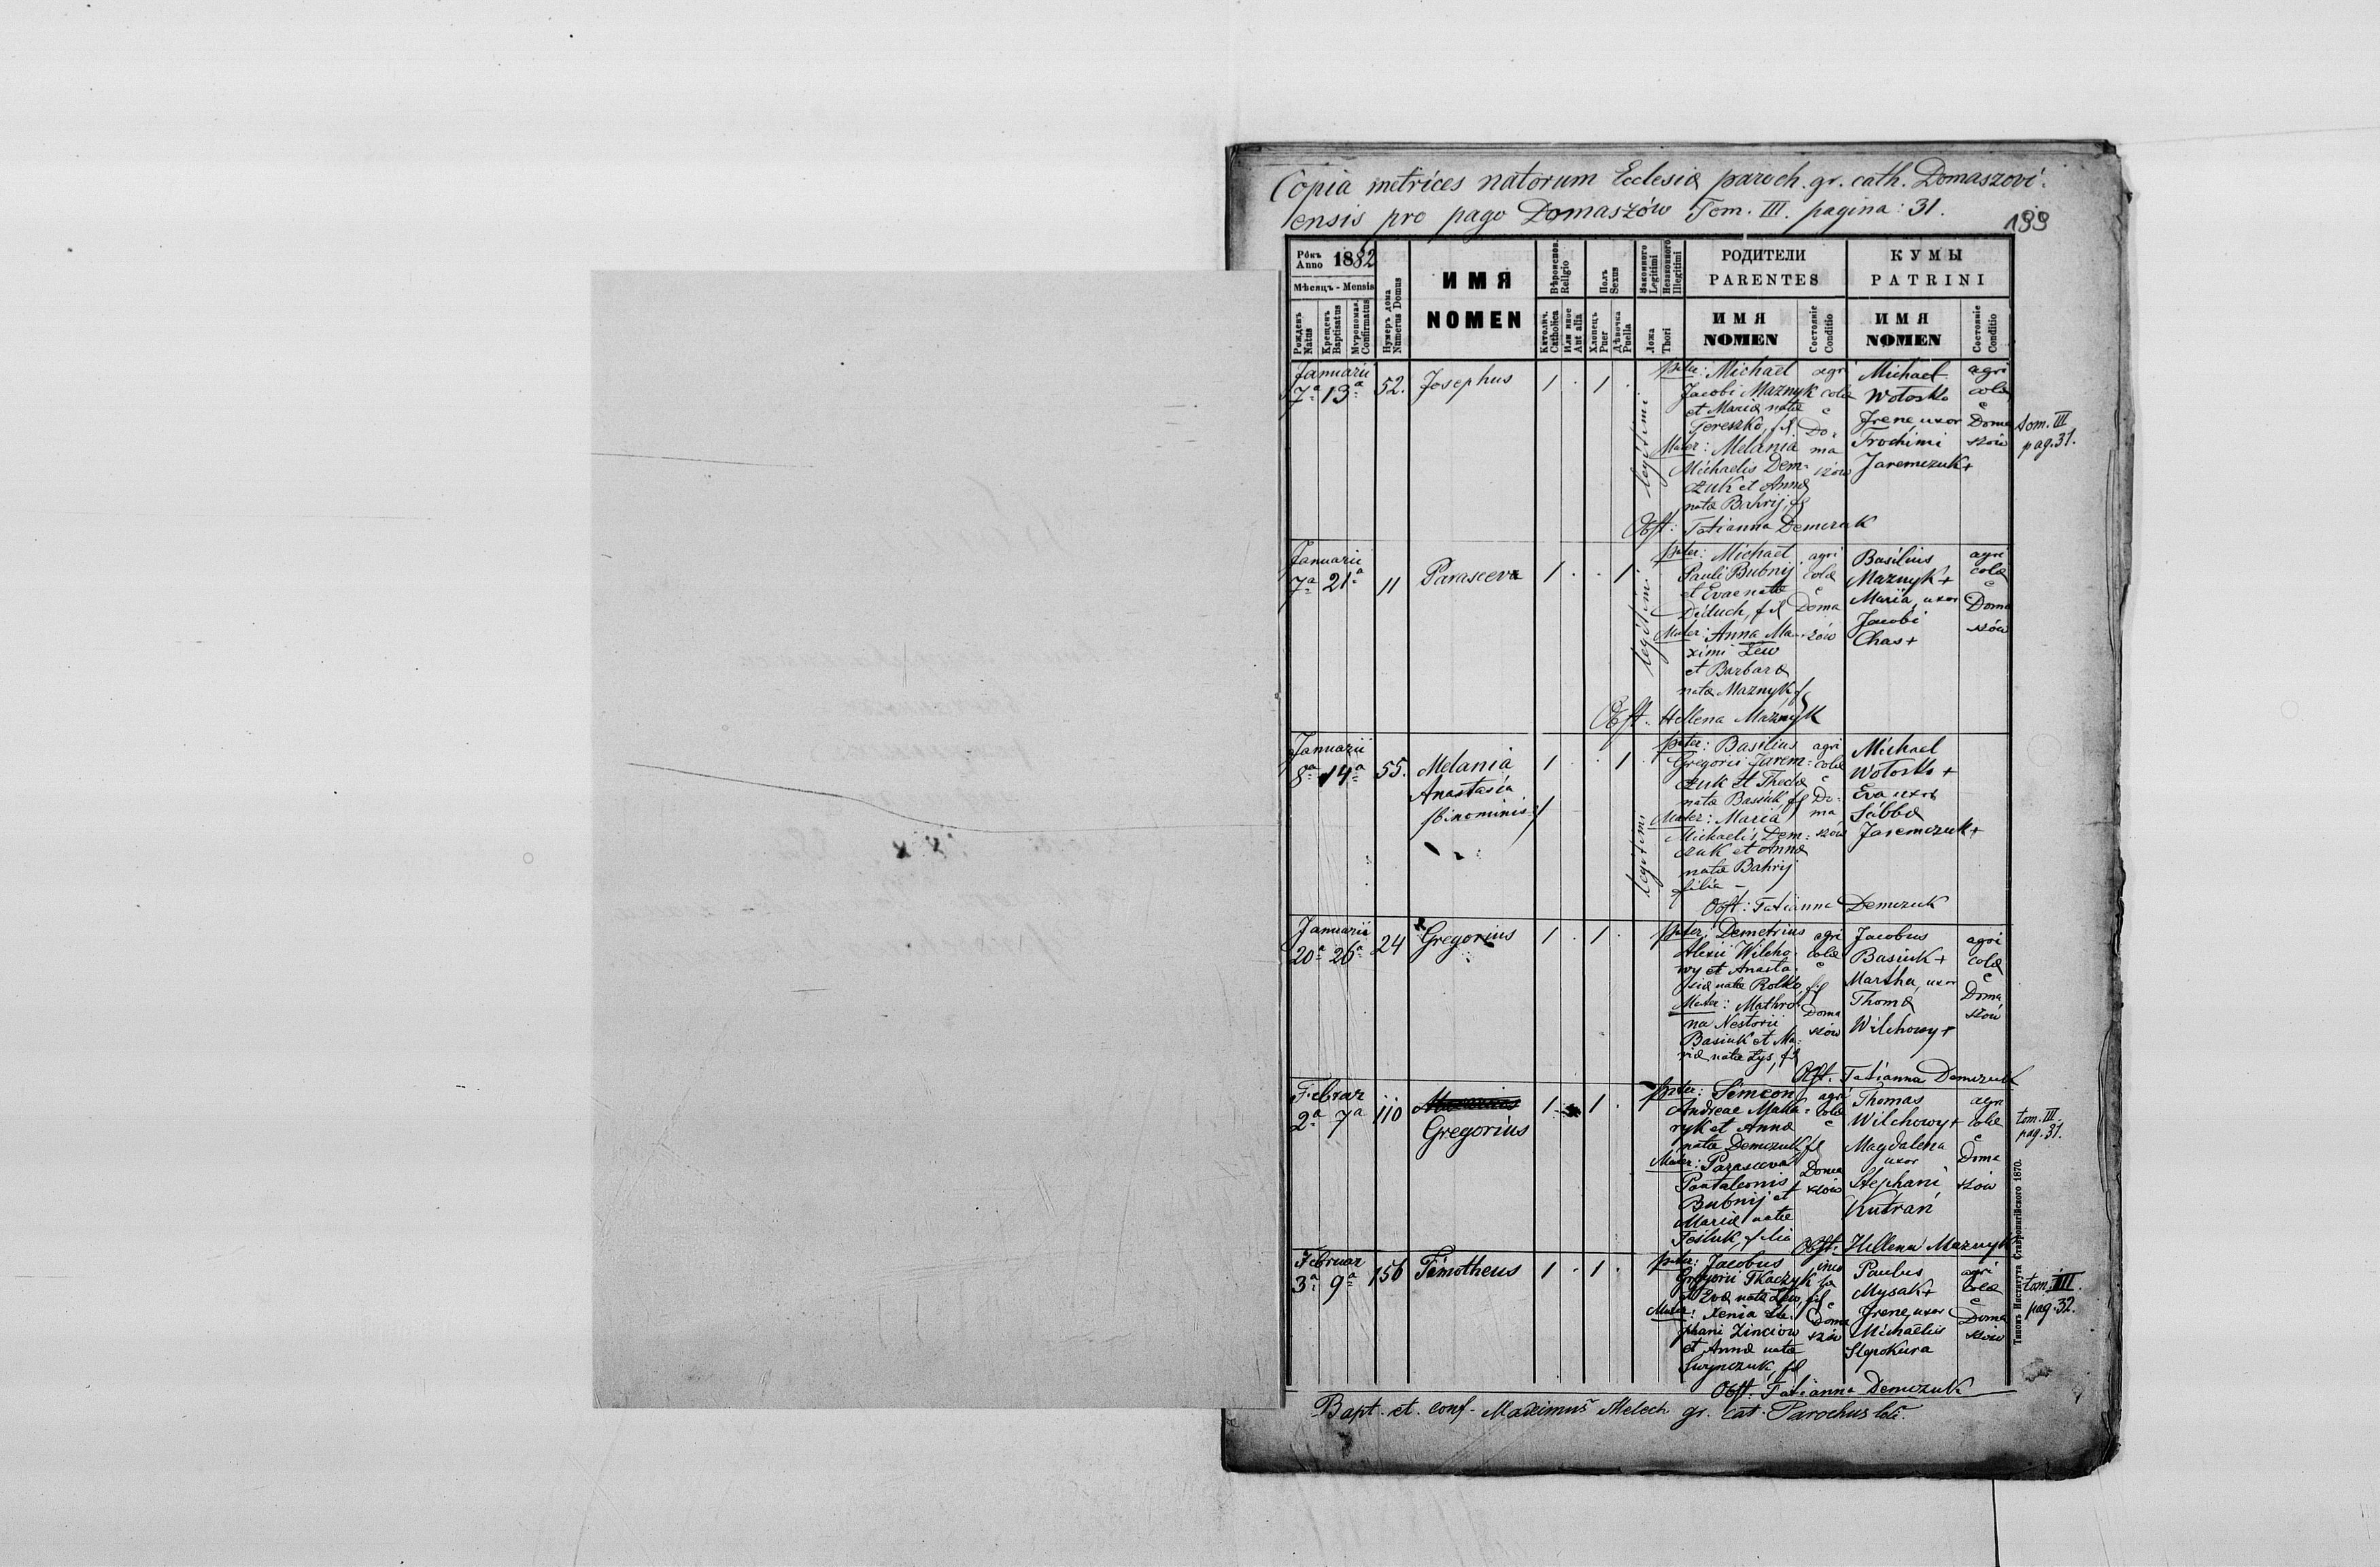 Copia metrices natorum Ecclesiæ paroch. gr. cath. Domaszovi-
ensis pro pago Domaszów Tom. III. pagina: 31.
199
Рôкъ Anno 1882
Мѣсяцъ - Mensis
Рожденъ Natus
Крещенъ Baptisatus
Мѵропомаз. Confirmatus
Нумеръ дома Numerus Domus
ИМЯ
NOMEN
Вѣроиспов. Religio
Католич. Catholica
Или иное Aut alia
Полъ Sexus
Хлопецъ Puer
Дѣвочка Puella
Законного Legitimi
Незаконного Illegitimi
Ложа Thori
РОДИТЕЛИ
PARENTES
ИМЯ
NOMEN
Состояніе Conditio
КУМЫ
PATRINI
ИМЯ
NOMEN
Состояніе Conditio
Januarii
7ª 13ª 52. Josephus 1 . 1 .
legitimi
pater: Michael
Jacobi Maznyk
et Mariæ natæ
Tereszko, fil
Mater: Melania
Michaelis Dem-
czuk et Annæ
natæ Bahrij, fil
agri
colæ
è
Do-
ma
szów
Michael
Wołosko
Irene, uxor
Trochimi
Jaremczuk +
agri
colæ
è
Doma
szów
tom. III
pag. 31.
Obst: Tatianna Demczuk
Januarii
7ª 21ª 11 Parasceva 1 . . 1
legitimi
pater: Michael
Pauli Bubnij
et Evae natæ
Diduch, fil
Mater: Anna Ma-
ximi Lew
et Barbaræ
natæ Maznyk f
agri
colæ
è
Doma
szów
Basilius
Maznyk +
Maria, uxor
Jacobi
Chas +
agri
colæ
è
Doma
szów
Obst: Hellena Maznyk
Januarii
8ª 14ª 55. Melania 1 . . 1
Anastasia
/binominis:/
legitimi
pater: Basilius
Gregorii Jarem-
czuk et Theclæ
natæ Basiuk, fil
Mater: Maria
Michaelis Dem-
czuk et Annæ
natæ Bahrij
filia -
agri
colæ
è
Do-
ma
szów
Michael
Wołosko +
Eva uxor
Sabbæ
Jaremczuk +
Obst: Tatianna Demczuk
Januarii
20ª 26ª 24 Gregorius 1 . 1 .
pater: Demetrius
Alexii Wilcho-
wy et Anasta-
siæ natæ Rolko, fil
Mater: Mathro-
na Nestorii
Basiuk et Ma-
riæ natæ Lys, fil
agri
colæ
è
Doma
szów
Jacobus
Basiuk +
Martha, uxor
Thomæ
Wilchowy +
agri
colæ
è
Doma
szów
Obst. Tatianna Demczuk
Februar
2ª 7ª 110 Gregorius 1 1 .
pater: Simeon
Andreae Maka-
ryk et Annæ
natæ Demczuk fil
Mater: Parasceva
Pantaleonis
Bubnij et
Mariæ natæ
Tesluk, filia
agri
colæ
è
Doma
szów
Thomas
Wilchowy +
Magdalena
uxor
Stephani
Kutran
agri
colæ
è
Doma
szów
tom. III.
pag. 31.
Obst: Hellena Maznyk
Februar
3ª 9ª 156 Timotheus 1 . 1 .
pater: Jacobus
Gregorii Tkaczyk
et Evæ natæ Lew, fil
Mater: Xenia Ste-
phani Zinciow
et Annæ natæ
Swynczuk, fil
inco
læ
è
Doma
szów
Paulus
Mysak +
Irene, uxor
Michaelis
Slepokura
agri
colæ
è
Doma
szów
tom. III.
pag. 32.
Obst: Tatianna Demczuk
Bapt. et. conf. Maximus Meloch gr. cat. Parochus loci.
Типомъ Института Ставропигійского 1870.